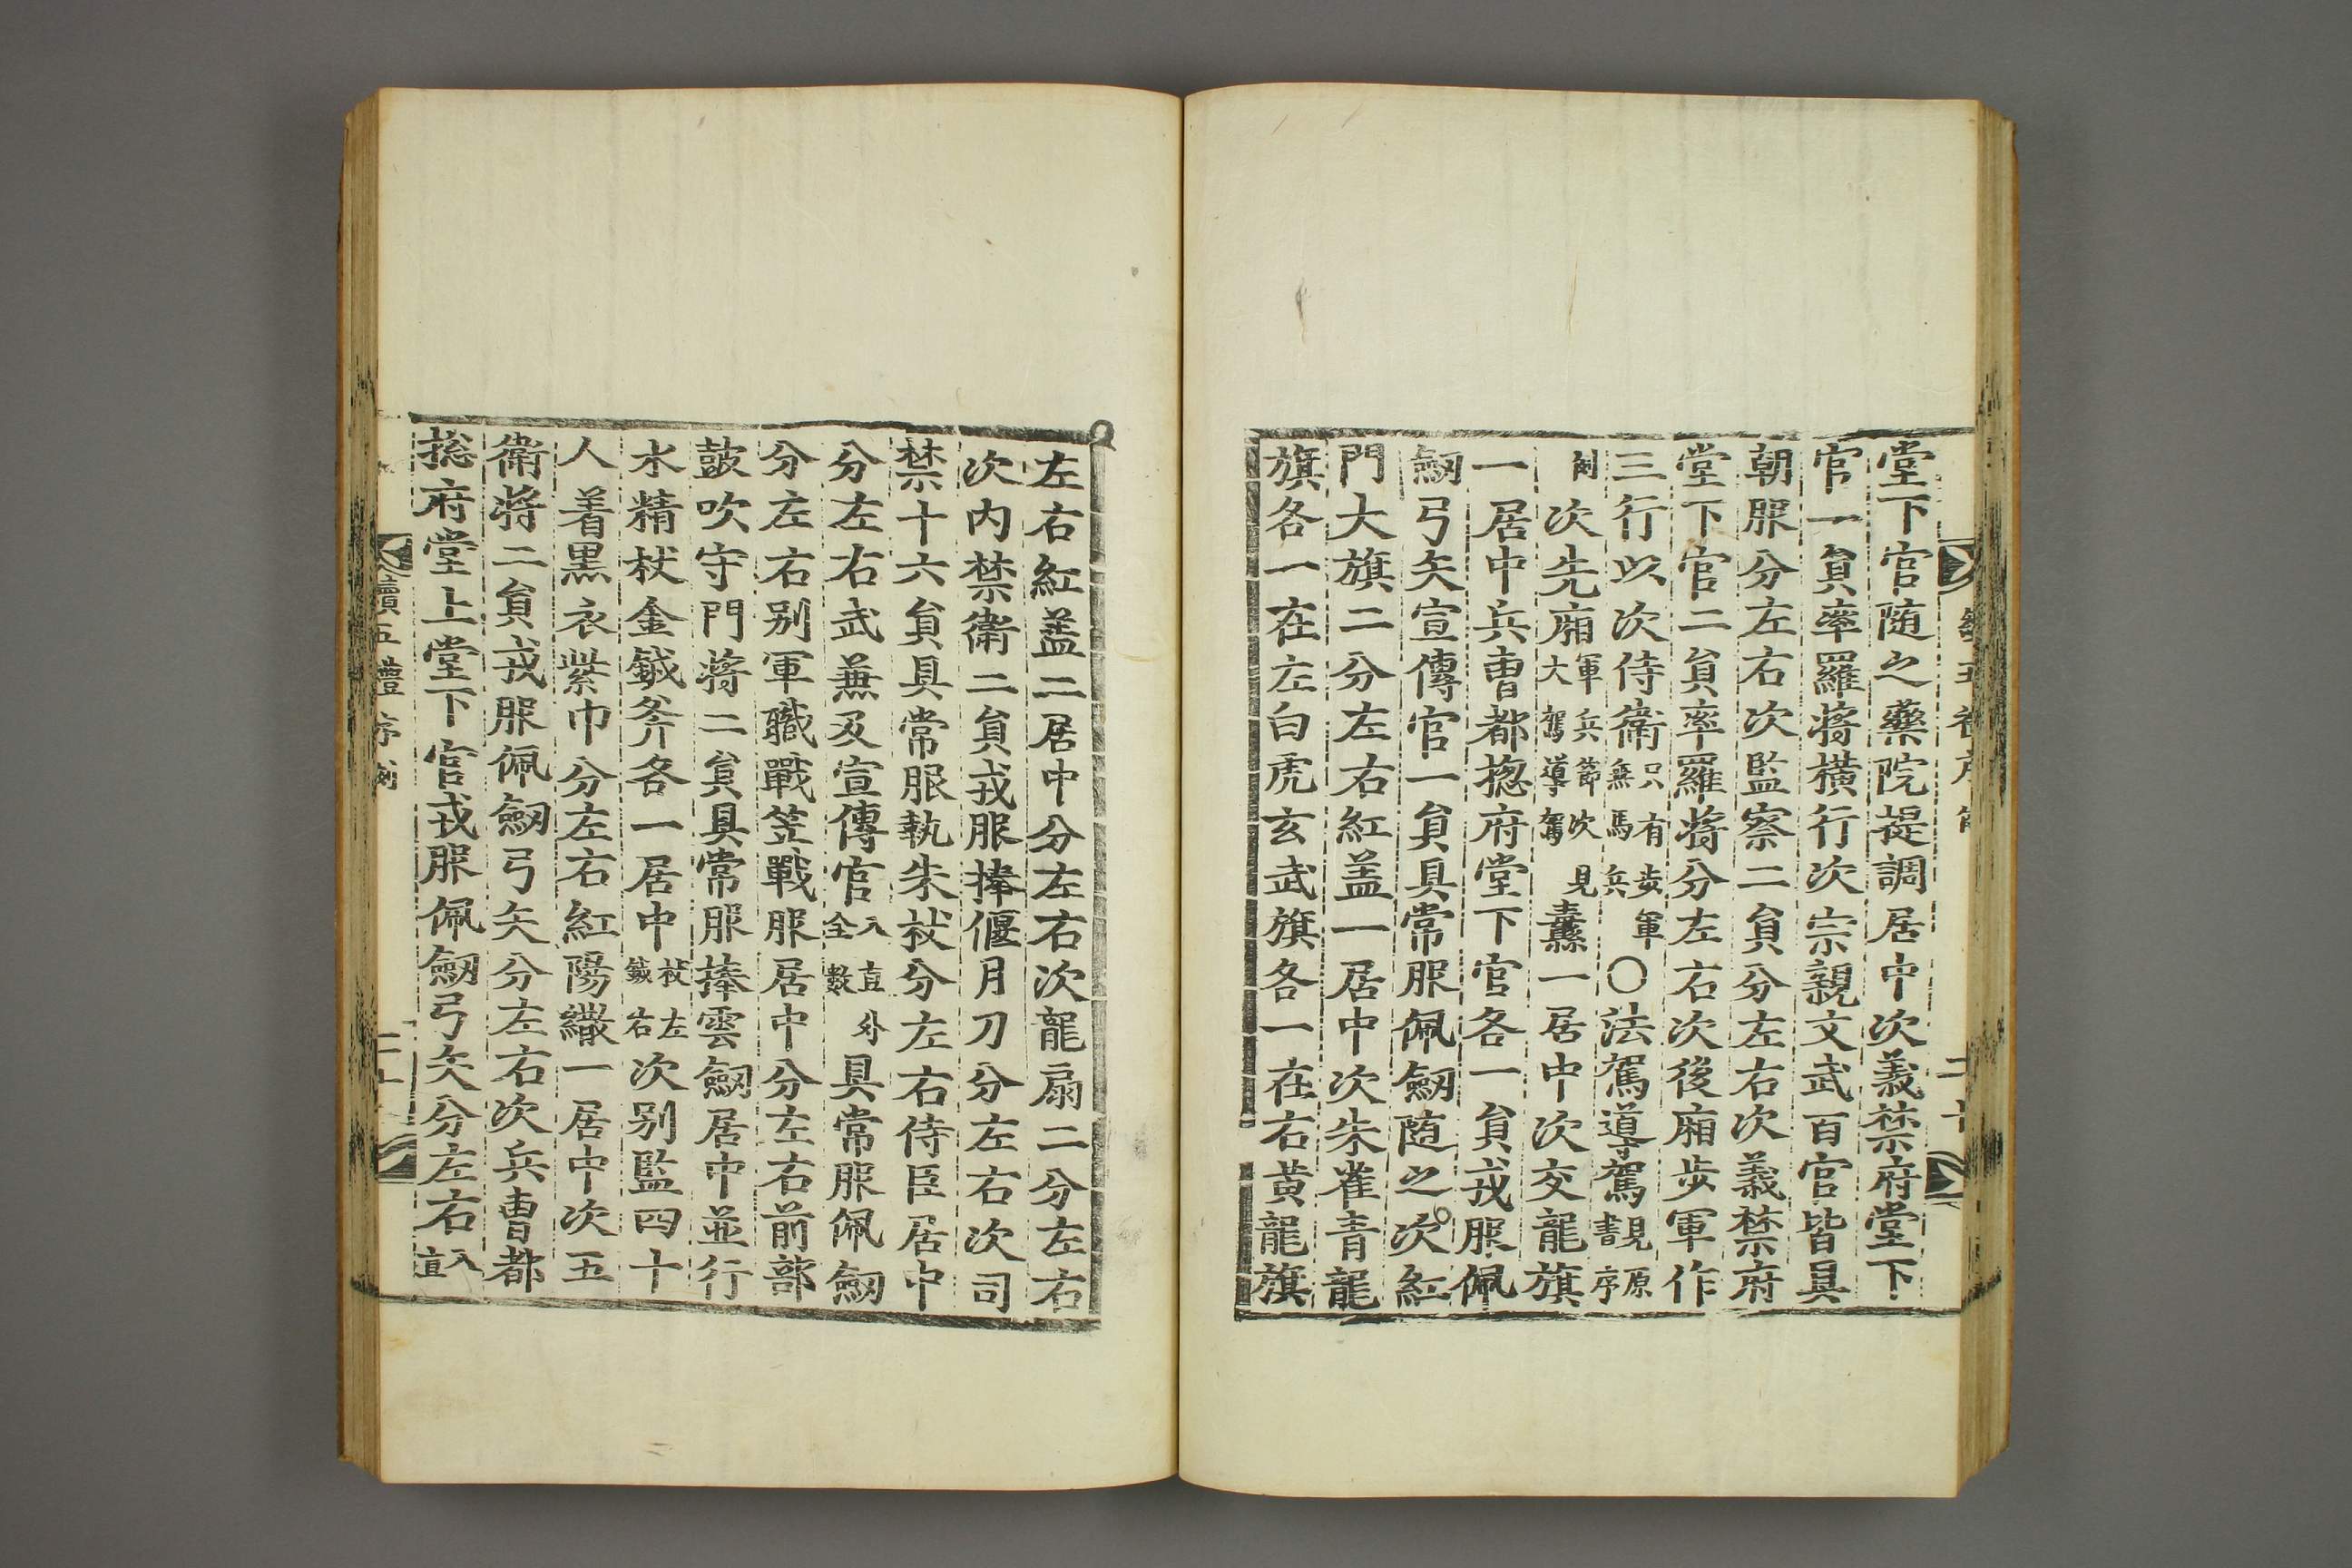 堂下官随之藥院提調居中次義禁府堂下
官一員率羅將橫行次宗親文武百官皆具
朝服分左右次監察二員分左右次義禁府
堂下官二員率羅將分左右次後廂步軍作
三行以次侍衛只有步軍無馬兵〇法駕導駕覩原序
例次先廂軍兵節次見大駕導駕纛一居中次交龍旗
一居中兵曹都揔府堂下官各一員戎服佩
劒弓矢宣傳官一員具常服佩劒随之次紅
門大旗二分左右紅盖一居中次朱雀青龍
旗各一在左白虎玄武旗各一在右黃龍旗
左右紅盖二居中分左右次龍扇二分左右
次内禁衛二員戎服捧偃月刀分左右次司
禁十六員具常服執朱杖分左右侍臣居中
分左右武兼及宣傳官入直外全數具常服佩劒
分左右别軍職戰笠戰服居中分左右前部
鼓吹守門將二員具常服捧雲劒居中並行
水精杖金鉞斧各一居中杖左鉞右次别監四十
人着黑衣紫巾分左右紅陽繖一居中次五
衛將二員戎服佩劒弓矢分左右次兵曹都
揔府堂上堂下官戎服佩劒弓矢分左右入直
續五禮序例